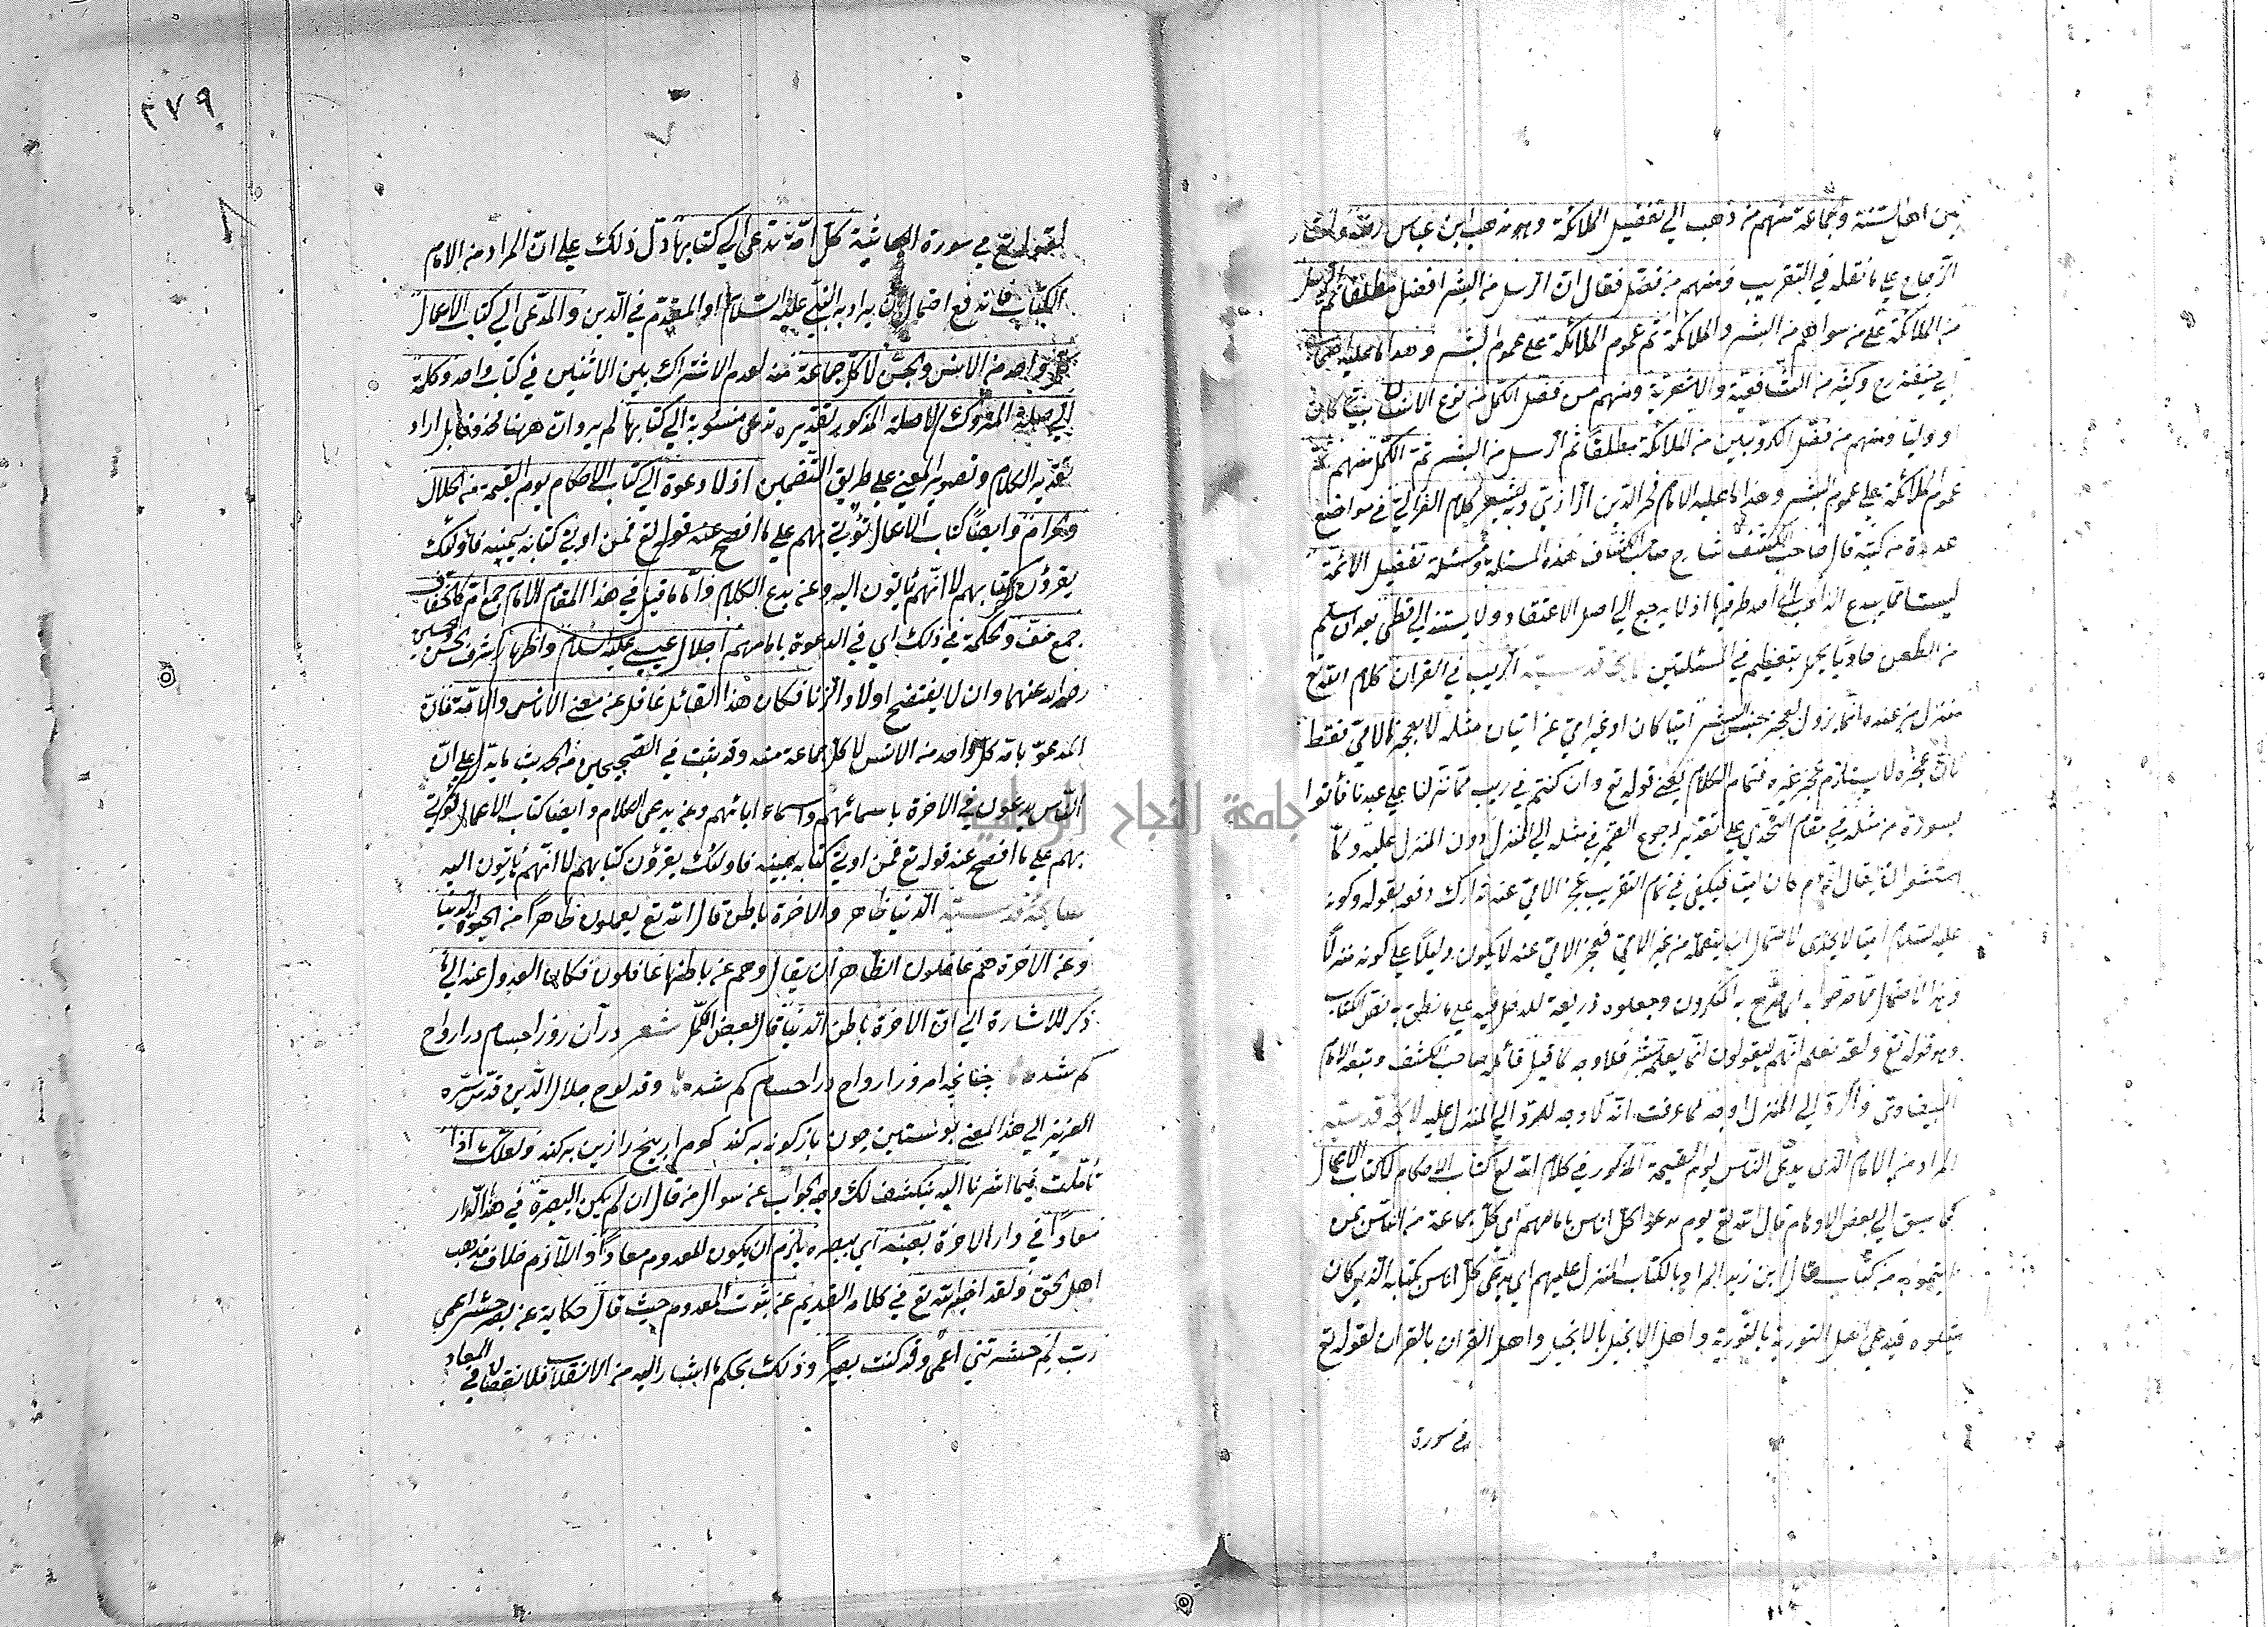 بين اهل السنة وجماعة منهم من ذهب الى تفضيل الملائكة وهو مذهب ابن عباس رضه واختار
الزجاج على ما نقله في التقريب ومنهم من فصل فقال ان الرسل من البشر افضل مطلقا ثم الرسل
من الملائكة على من سواهم من البشر والملائكة ثم عموم الملائكة على عموم البشر وهذا ما عليه اصحاب
ابي حنيفة رح وكثير من الشافعية والاشعرية ومنهم من فضل الكمل من نوع الانسان نبيا كان
او وليا ومنهم من فضل الكروبيين من الملائكة مطلقا ثم الرسل من البشر ثم الكمل منهم ثم
عموم الملائكة على عموم البشر وهذا ما عليه الامام فخر الدين الرازي وبه يشعر كلام الغزالي في مواضع
عديدة من كتبه قال صاحب الكشف شارح الكشاف هذه المسئلة ومسئلة تفضيل الائمة
ليستا مما يبدع الذاهب الى احد طرفيها اذ لا يرجع الى اصل الاعتقاد ولا يستند الى قطعي بعد ان سلم
من الطعن وما يخل بتعظيم في المسئلتين قدسية الريب في القران كلام الله تع
منزل من عنده انما يزول لعجز جنس البشر اميا كان او غير امي عن اتيان مثله لا بعجز الامي فقط
فان عجزه لا يستلزم عجز غيره فتمام الكلام يعني قوله تع وان كنتم في ريب مما نزلنا على عبدنا فأتوا
بسورة من مثله في مقام التحدي على تقدير رجوع الضمير في مثله الى المنزل دون المنزل عليه ولما
استشعر ان يقال انه م كان اميا فيكفي في تمام التقريب عجز الامي عنه تدارك دفعه بقوله وكونه
عليه السلام اميا لا يجدي لاحتمال ان يتعلمه من غير الامي فعجز الامي عنه لا يكون دليلا على كونه منزلا
وهذا الاحتمال مما قد صرح به المنكرون وجعلوه ذريعة للدخل فيه على ما نطق به نص الكتاب
وهو قوله تع ولقد نعلم انهم يقولون انما يعلمه بشر فلا وجه لما قيل قائله صاحب الكشف وتبعه الامام
البيضاوي والرد الى المنزل اوجه لما عرفت انه لا وجه للرد الى المنزل عليه قدسية
المراد من الامام الذي يدعى الناس يوم القيمة المذكور في كلام الله تع كتاب الاحكام لا كتاب الاعمال
كما سبق الى بعض الاوهام قال الله تع يوم ندعوا كل اناس بامامهم اي كل جماعة من الناس بمن
ايتموا به من كتاب قال ابن زيد المراد بالكتاب المنزل عليهم اي يدعى كل اناس بكتابه الذي كان
يتلوه فيدعى اهل التورية بالتورية واهل الانجيل بالانجيل واهل القران بالقران لقوله تع
في سورة
٣٧٩
لقوله تع في سورة الجاثية كل امة تدعى الى كتابها دل ذلك على ان المراد من الامام
الكتاب فاندفع احتمال ان يراد به النبي عليه السلام او المقدم في الدين والمدعى الى كتاب الاعمال
كل واحد من الانس والجن لا كل جماعة منه لعدم الاشتراك بين الاثنين في كتاب واحد وكلمة
الى صلة المتروك لا صلة المذكور تقديره تدعى منسوبة الى كتابها لم يرد ان ههنا محذوفا بل اراد
تقدير الكلام وتصوير المعنى على طريق التضمين اذ لا دعوة الى كتاب الاحكام يوم القيمة من الحلال
والحرام وايضا كتاب الاعمال يؤتى بهم على ما افصح عنه قوله تع فمن اوتي كتابه بيمينه فاولئك
يقرؤن كتابهم لا انهم يأتون اليه وعن بدع الكلام واما ما قيل في هذا المقام الامام جمع ام كالخفاف
جمع خف والحكمة في ذلك اي في الدعوة بامامهم اجلال عيسى عليه السلام واظهار شرف الحسن والحسين
رضي الله عنهما وان لا يفتضح اولاد الزنا فكان هذا القائل غافل عن معنى الاناس والامة فان
المدعو بامه كل واحد من الانس لا كل جماعة منه وقد ثبت في الصحيحين من الحديث ما يدل على ان
الناس يدعون في الاخرة باسمائهم واسماء ابائهم وعن بدعى الكلام وايضا كتاب الاعمال يؤتى
بهم على ما افصح عنه قوله تع فمن اوتي كتابه بيمينه فاولئك يقرؤن كتابهم لا انهم يأتون اليه
قدسية الدنيا ظاهر والاخرة باطن قال الله تع يعلمون ظاهرا من الحيوة الدنيا
وعن الاخرة هم غافلون الظاهر ان يقال وهم عن باطنها غافلون فكان العدول عنه الى ما
ذكر للاشارة الى ان الاخرة باطن الدنيا قال بعض الكمل شعر در آن روز اجسام در ارواح
كم شده چنانچه امروز ارواح در اجسام كم شده وقد لوح جلال الدين قدس سره
العزيز الى هذا المعنى پوستين چون بازكونه به كند كوه را بيخ را زين به كند ولعلك اذا
تأملت فيما اشرنا اليه ينكشف لك وجه الجواب عن سوال من قال ان لم يكن البصرة في هذا الدار
معادا في دار الاخرة بعينه اي ببصره يلزم ان يكون المعدوم معادا واللازم خلاف مذهب
اهل الحق ولقد اخبر الله تع في كلامه القديم عن ثبوت المعدوم حيث قال حكاية عن بصر حشر اعمى
رب لم حشرتني اعمى وقد كنت بصيرا وذلك بحكم ما اشار اليه من الانقلاب فلا نقصان في المعاد
جامعة النجاح الوطنية